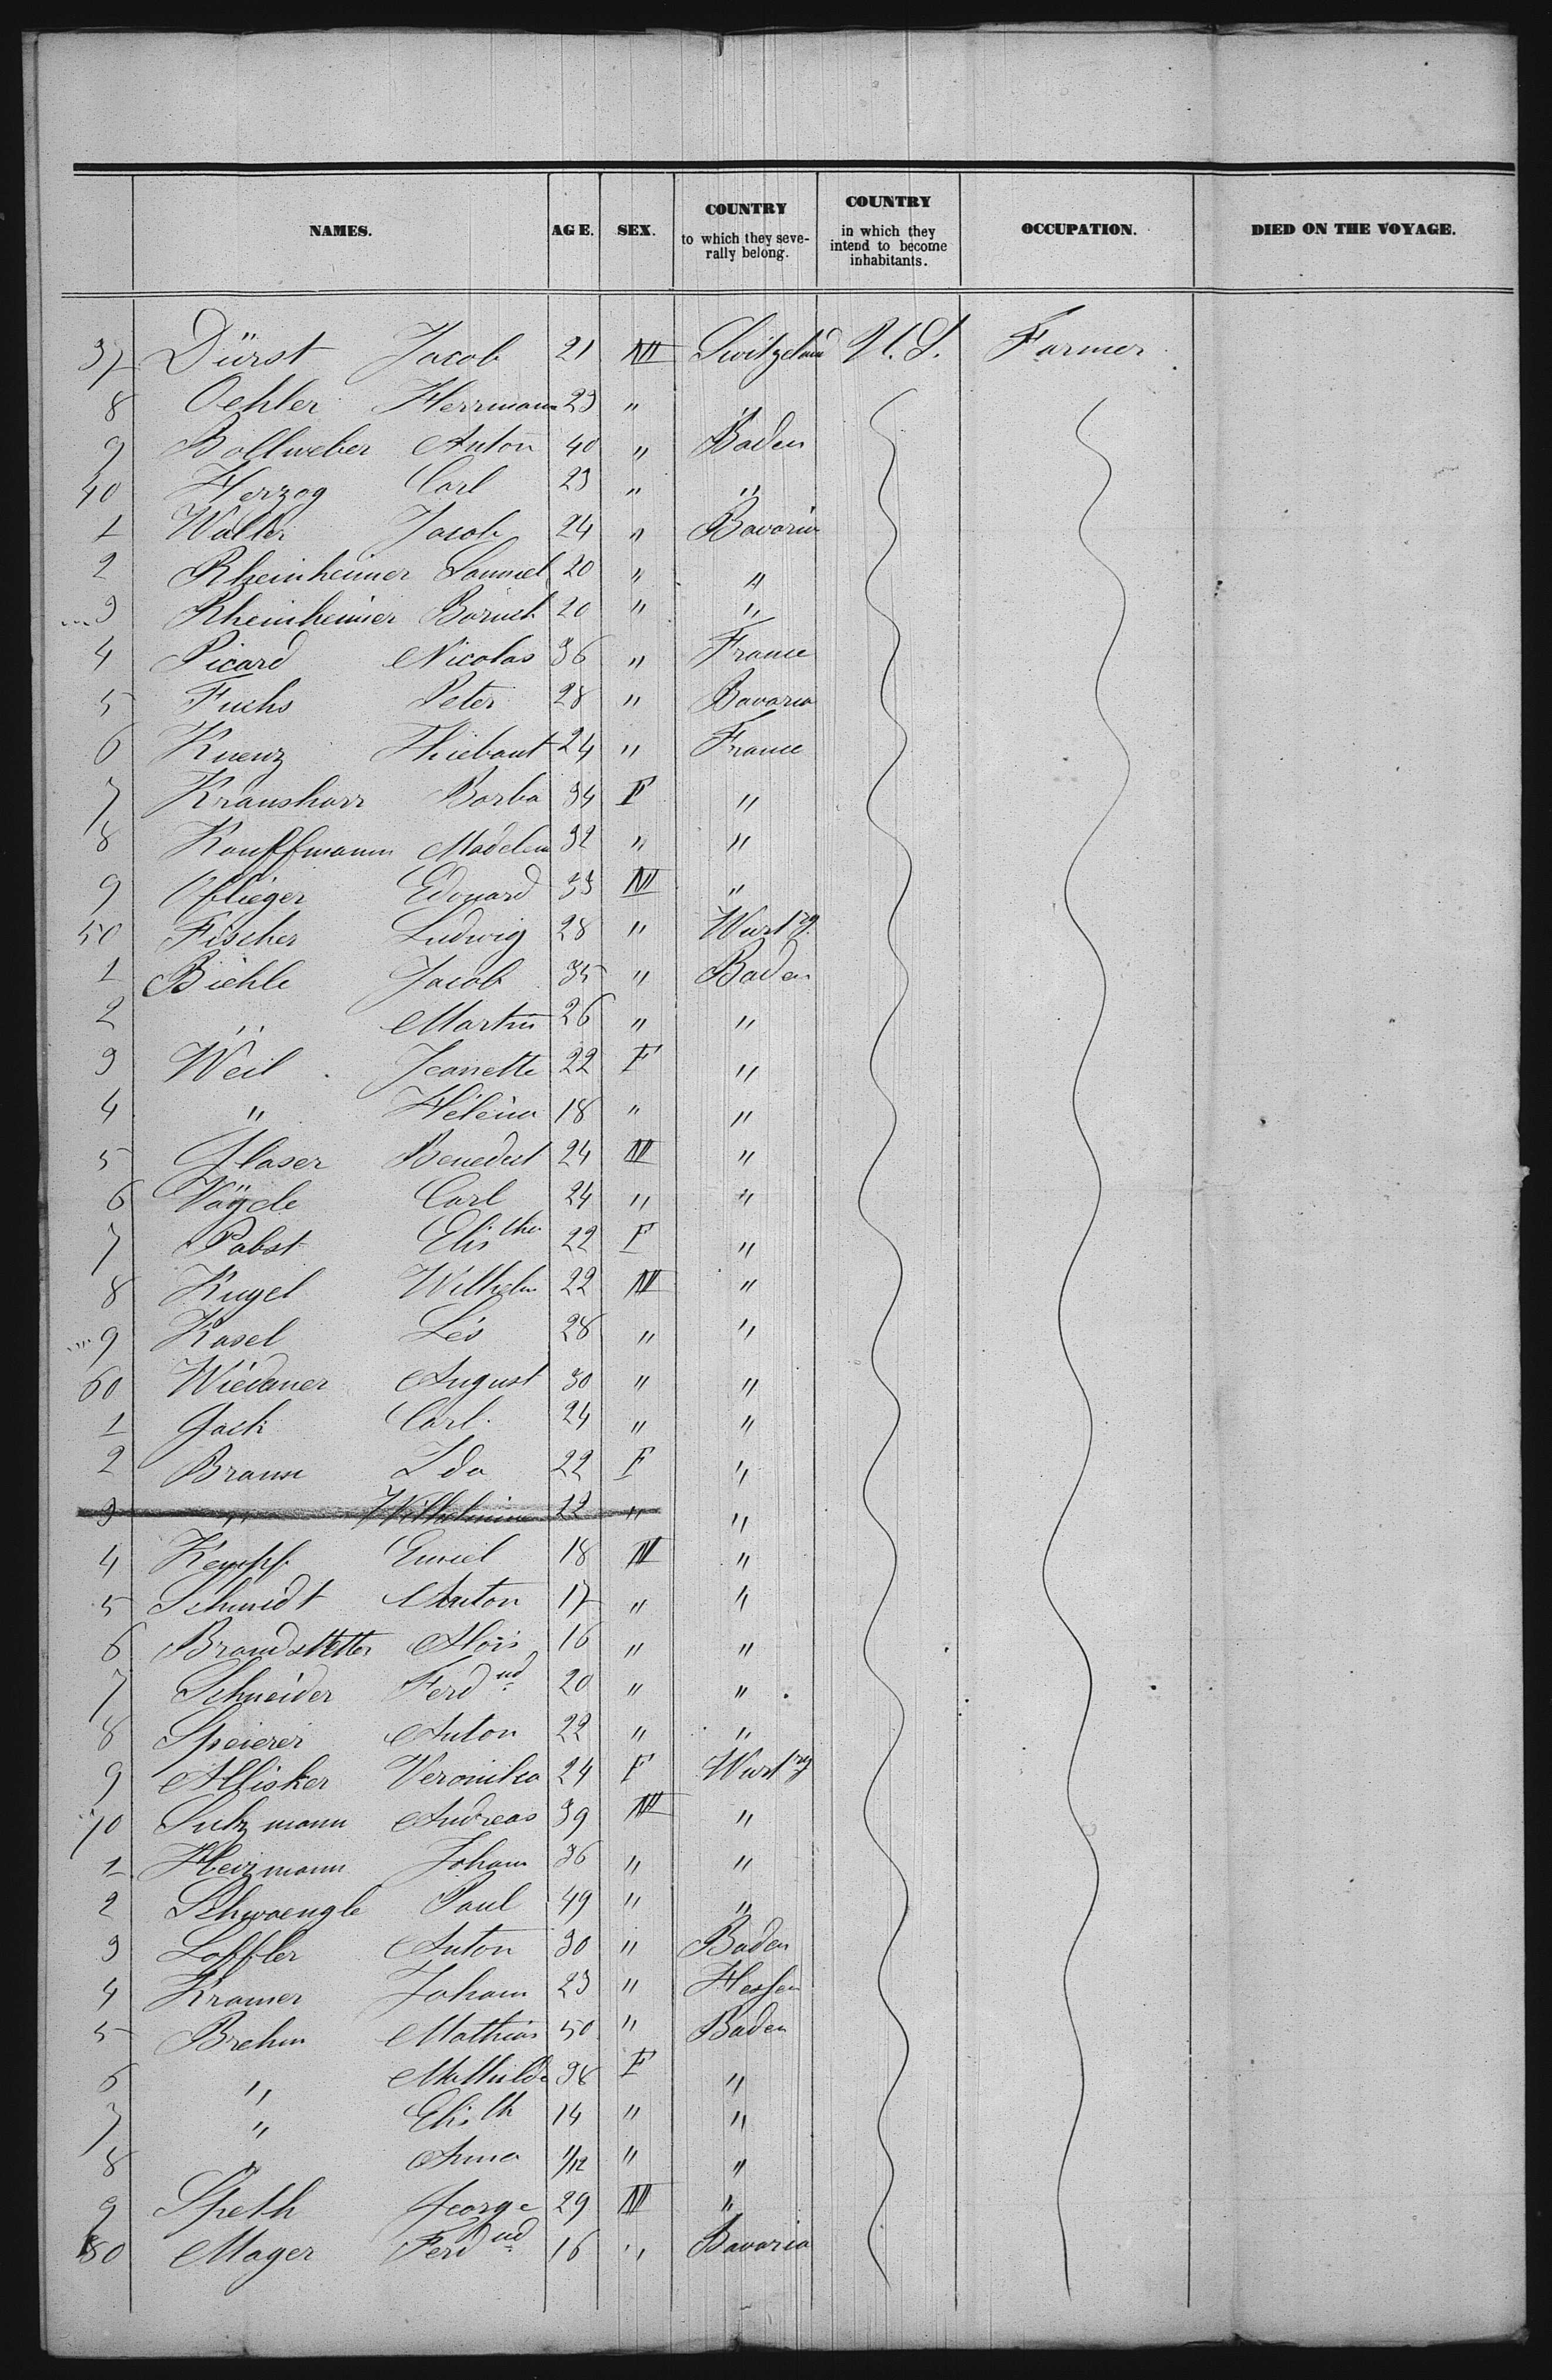 NAMES. AGE. SEX. COUNTRY to which they seve-rally belong. COUNTRY in which they intend to become inhabitants. OCCUPATION. DIED ON THE VOYAGE.
37 Dürst Jacob 21 M Switzeland U.S. Farmer
8 Oehler Herrmann 23 " "
9 Bollweber Anton 40 " Baden
40 Herzog Carl 23 " "
1 Walter Jacob 24 " Bavaria
2 Rheinheimer Samuel 20 " "
3 Rheinheimer Baruch 20 " "
4 Picard Nicolas 36 " France
5 Fuchs Peter 28 " Bavaria
6 Kuenz Thiebaut 24 " France
7 Kranshorr Barba 34 F "
8 Kauffmann Madelen 32 " "
9 Pflieger Edouard 33 M "
50 Fischer Ludwig 28 " Wurtg.
1 Biehle Jacob 35 " Baden
2 " Martin 26 " "
3 Weil Jeanette 22 F "
4 " Helena 18 " "
5 Glaser Benedict 24 M "
6 Vögele Carl 24 " "
7 Pabst Elisthe 22 F "
8 Kugel Wilhelm 22 M "
9 Kasel Léo 28 " "
60 Wiedmer August 30 " "
1 Gack Carl 24 " "
2 Braun Ida 22 F "
3 " Wilhelmine 22 " "
4 Kempf Emiel 18 M "
5 Schmidt Anton 17 " "
6 Brandstetter Alois 16 " "
7 Schneider Ferdnd 20 " "
8 Speierer Anton 22 " "
9 Allisker Veronika 24 F Wurtg
70 Sutzmann Andreas 39 M "
1 Heizmann Johann 36 " "
2 Schwaengle Paul 49 " "
3 Loffler Anton 30 " Baden
4 Kramer Johann 23 " Hessen
5 Brehm Mathias 50 " Baden
6 " Mathilde 38 F "
7 " Elisth 14 " "
8 " Anna 1/12 " "
9 Speth George 29 M "
80 Mager Ferdnd 16 " Bavaria